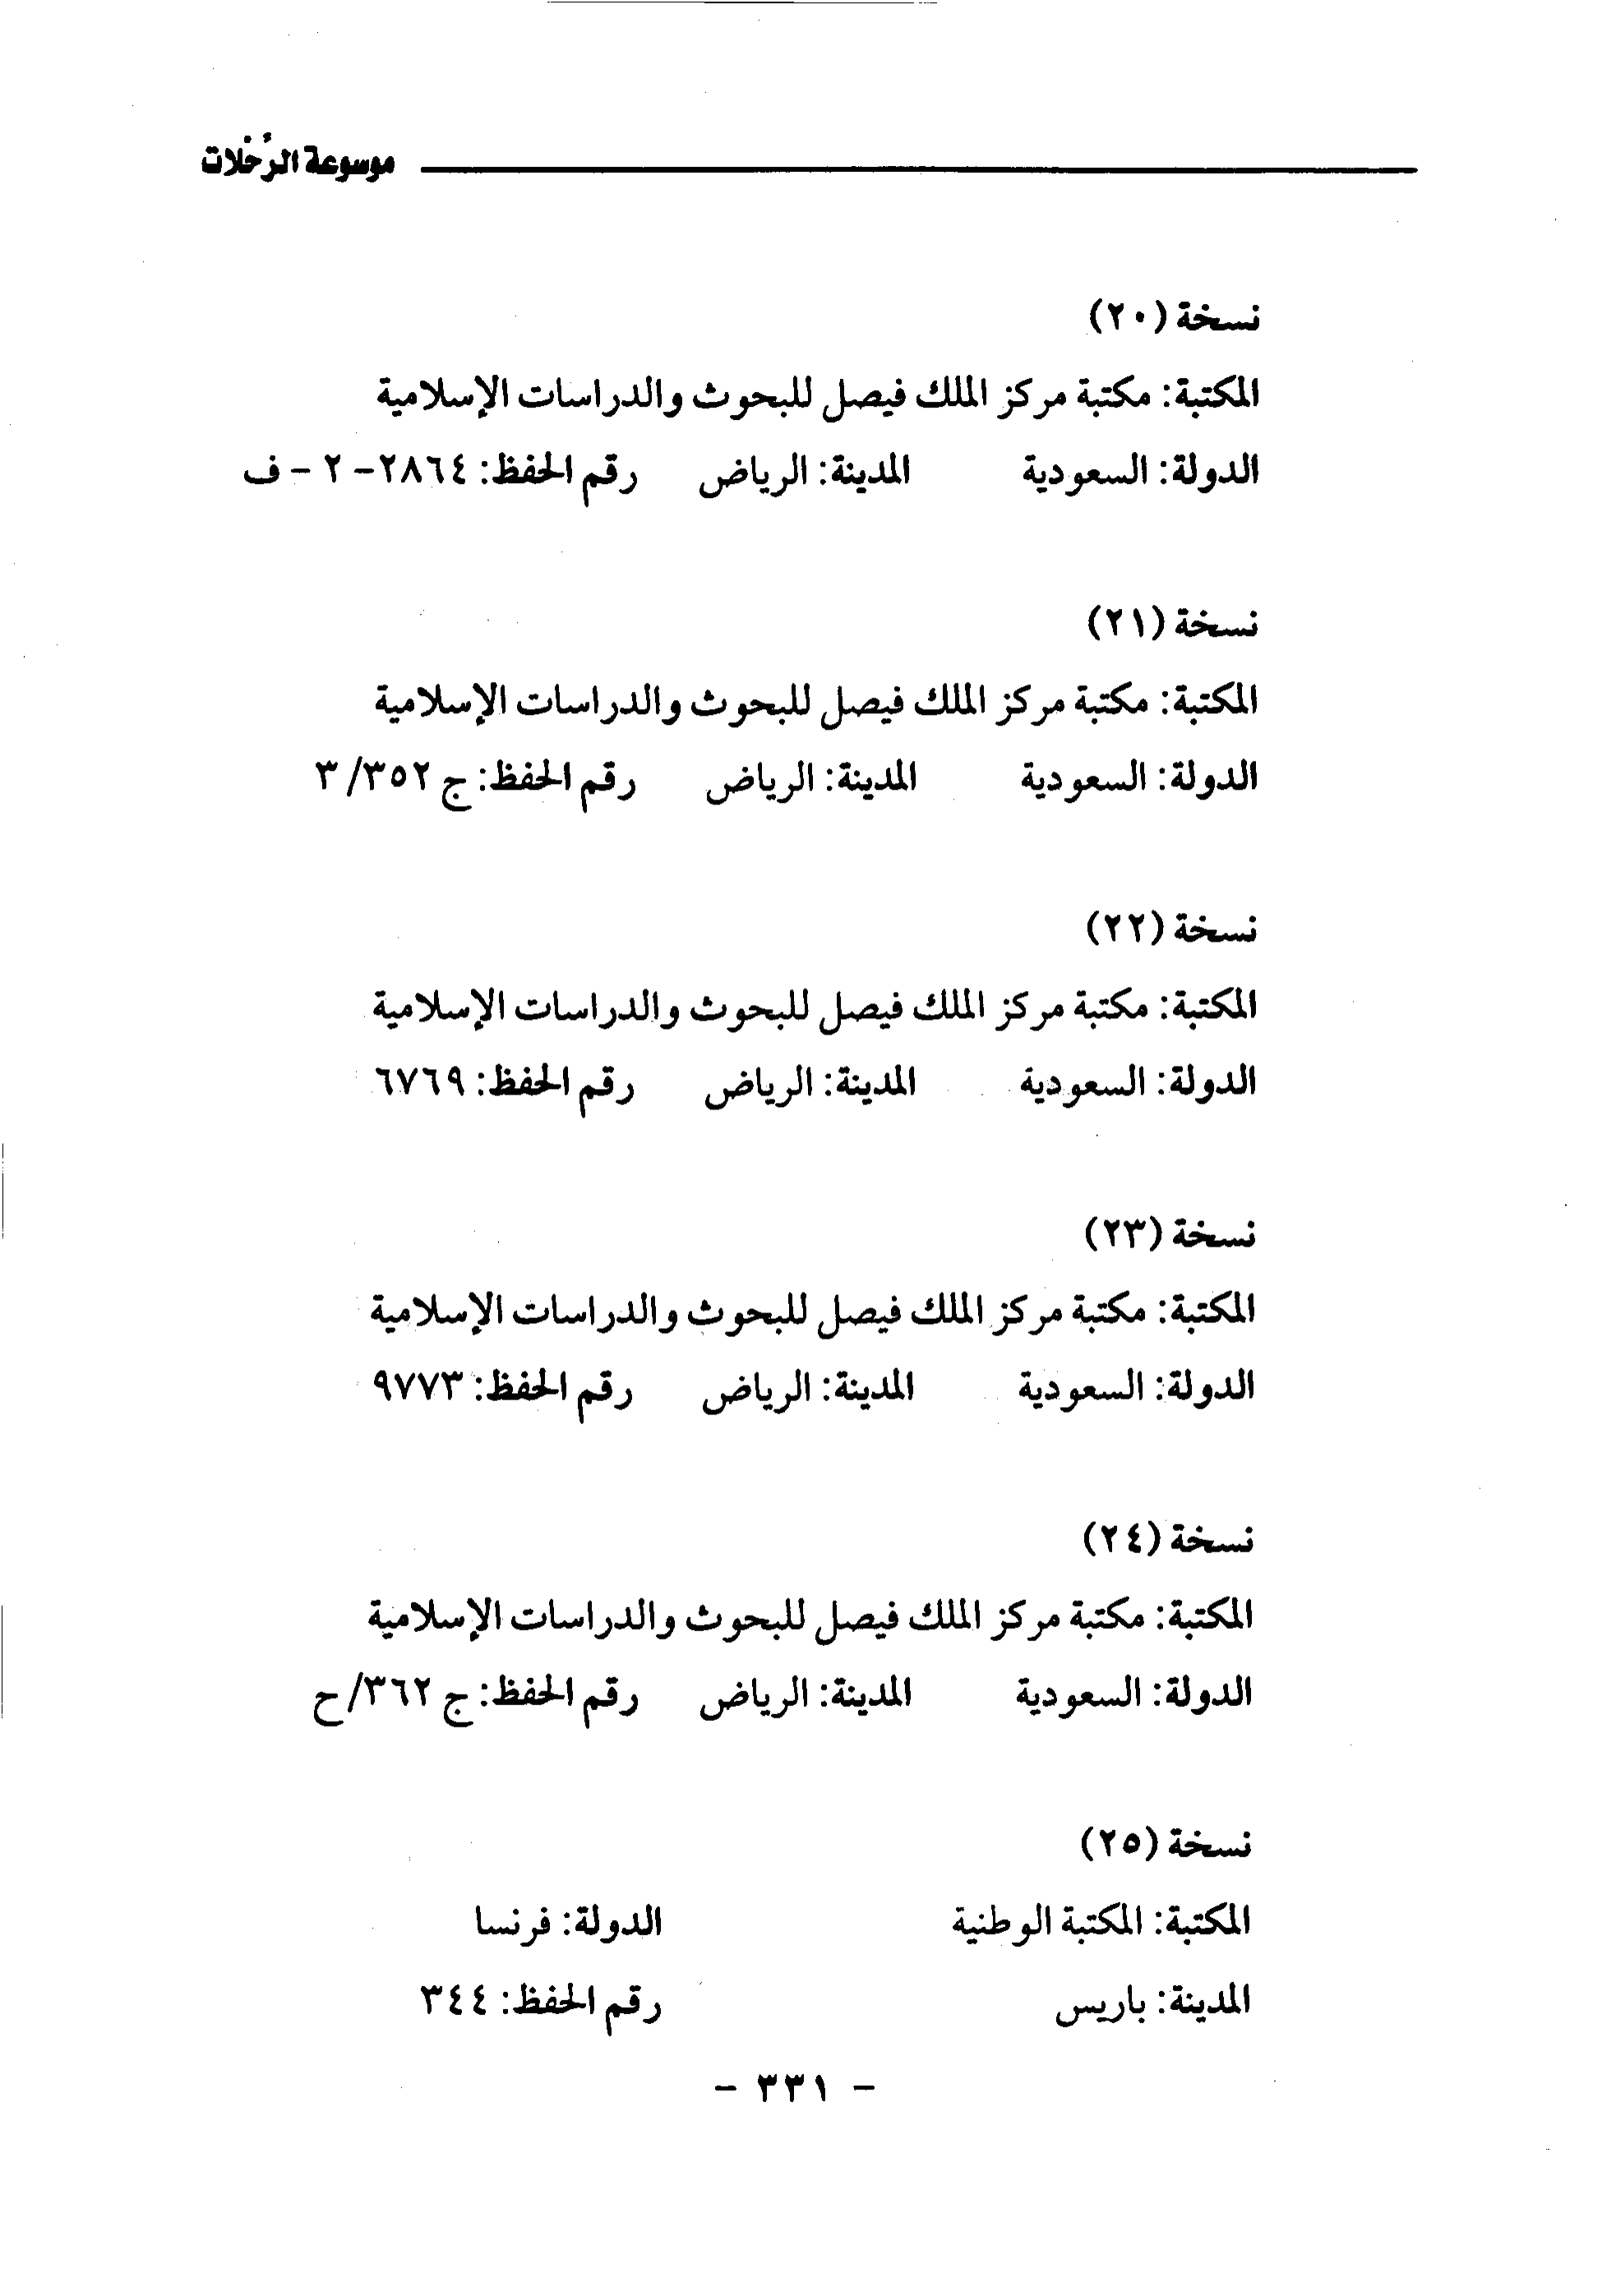 موسوعة الرُّحْلات
نسخة (٢٠)
المكتبة: مكتبة مركز الملك فيصل للبحوث والدراسات الإسلامية
الدولة: السعودية المدينة: الرياض رقم الحفظ: ٢٨٦٤- ٢ - ف
نسخة (٢١)
المكتبة: مكتبة مركز الملك فيصل للبحوث والدراسات الإسلامية
الدولة: السعودية المدينة: الرياض رقم الحفظ: ج ٣٥٢/ ٣
نسخة (٢٢)
المكتبة: مكتبة مركز الملك فيصل للبحوث والدراسات الإسلامية
الدولة: السعودية المدينة: الرياض رقم الحفظ: ٦٧٦٩
نسخة (٢٣)
المكتبة: مكتبة مركز الملك فيصل للبحوث والدراسات الإسلامية
الدولة: السعودية المدينة: الرياض رقم الحفظ: ٩٧٧٣
نسخة (٢٤)
المكتبة: مكتبة مركز الملك فيصل للبحوث والدراسات الإسلامية
الدولة: السعودية المدينة: الرياض رقم الحفظ: ج ٣٦٢/ح
نسخة (٢٥)
المكتبة: المكتبة الوطنية الدولة: فرنسا
المدينة: باريس رقم الحفظ: ٣٤٤
- ٣٣١ -